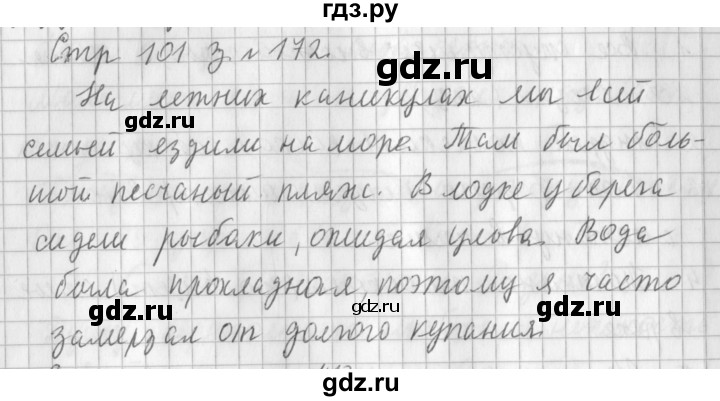 гдз.ру
Стр 101 з. № 172.
gdz.ru
На летних каникулах мы всей
gdz.ru
семьей ездили на море. Там был боль-
шой песчаный пляж. В лодке у берега
сидели рыбаки, ожидая улова. Вода
была прохладная, поэтому я часто
gdz.ru
gdz.ru
gdz.ru
замерзал от долгого купания.
gdz.ru